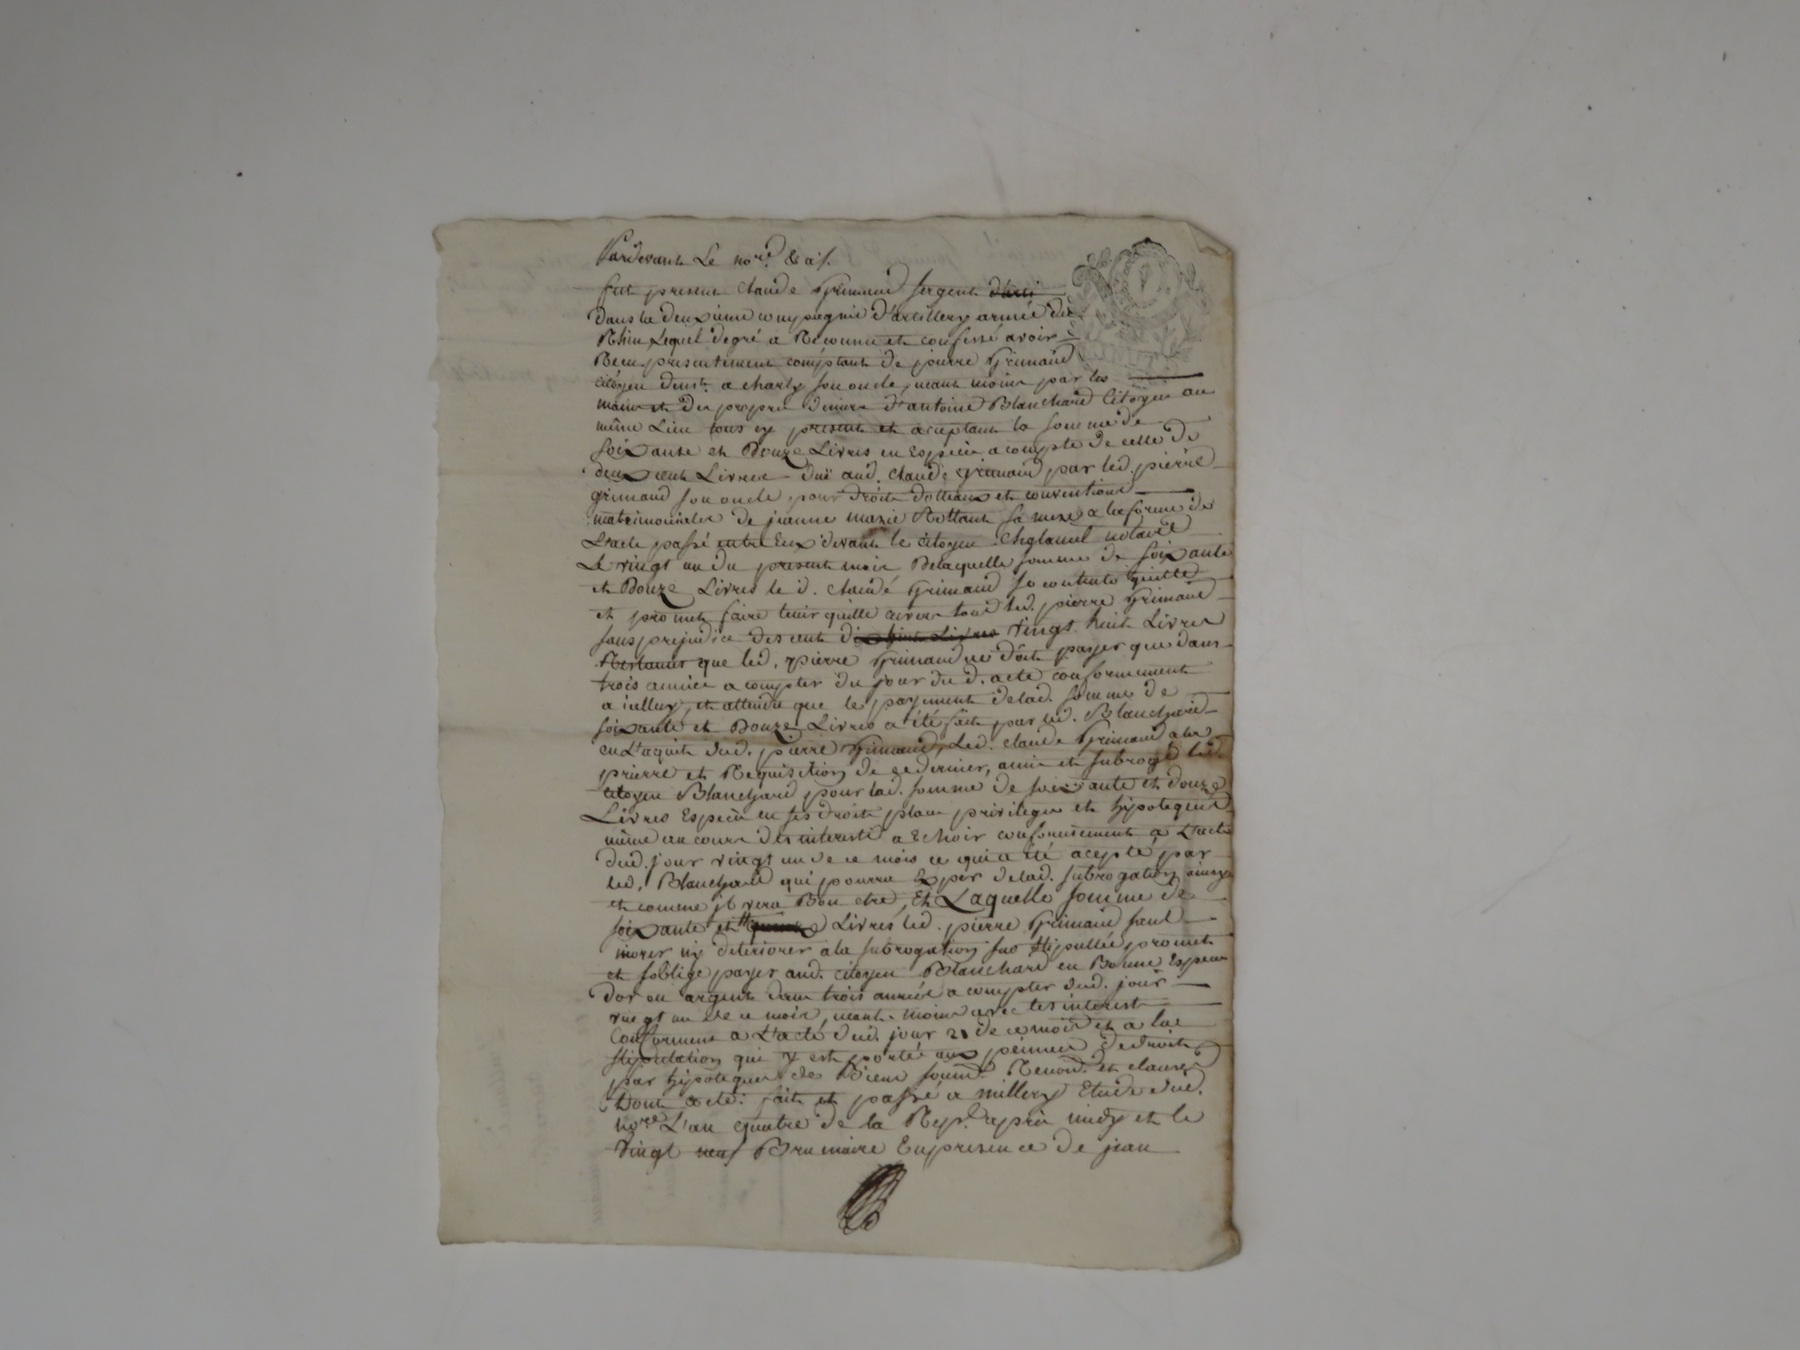 Pardevant Le no.re & a/.
fut present Claude Grimaud sergent
dans la deuxieme compagnie d'artillery armée du
Rhin lequel de gré a Reconnu et confessé avoir
Recu presentement comptant de pierre Grimaud
citoyen demt. a charly son oncle, neant moins par les
mains et des propres deniers d'antoine Blanchard Citoyen au
même Lieu tous cy present et aceptant la somme de
soixante et Douze Livres en Espece a compte de celle de
deux cent Livres duë aud. Claude Grimaud par led. pierre
grimaud son oncle pour droits dotteaux et conventions
matrimonialles de jeanne marie sa mere a la forme de
L'acte passé entre Eux devant le citoyen notaire
Le vingt un du present mois De laquelle somme de soixante
et Douze Livres le d. claude Grimaud se contente quitte
et promet faire tenir quitte envers tous led. pierre Grimaud
sans prejudice des cent vingt huit Livres
Restantes que led. pierre Grimaud ne doit payer que dans
trois années a compter du jour du d. acte conformement
a icelluy, et attendu que le payement de lad. somme de
soixante et Douze Livres a été fait par led. Blanchard
en L'aquit dud. pierre Grimaud, Led. claude Grimaud a la
prierre et Requisition de ce dernier, a mis et subrogé led.
citoyen Blanchard pour lad. somme de soixante et douze
Livres Espece en ses droits place privileges et hypoteques
même au cours des interests a Echoir conformement a L'acte
dud. jour vingt un de ce mois ce qui a été acepté par
led. Blanchard qui pourra de lad. subrogation ainsy
et comme il vera Bon etre, Et Laquelle somme de
soixante et Livres led. pierre Grimaud sans
inover ny deteriorer a la subrogation sus stipullée promet
et soblige payer aud. citoyen Blanchard en Bonne Espece
dor ou argent dans trois années a compter dud. jour
vingt un de ce mois, neant moins avec les interest
Conforment a L'acte dud. jour 21 de ce mois et a la
stipulation qui y est portée aux peines de droits
par hypoteques de Biens soum. Renon. et clauses
Dont acte: fait et passé a millery Etude dud.
no.re L'an quatre de la Rep. apres midy et le
vingt neuf Brumaire En presence de jean